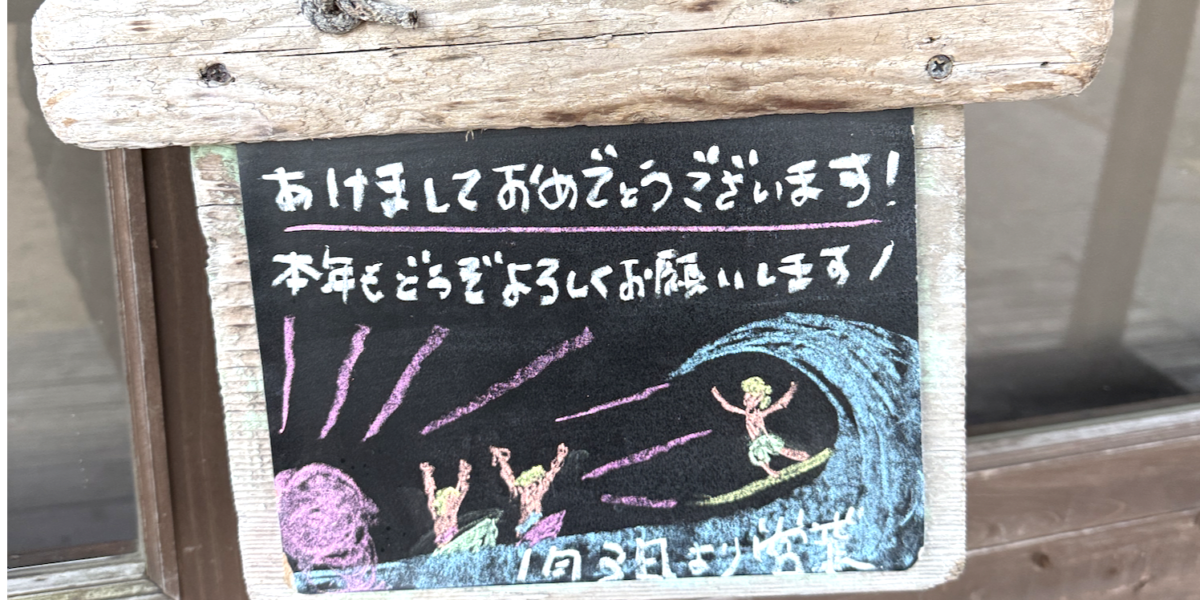 あけましておめでとうございます!
本年もどうぞよろしくお願いします!
1月3日より営業